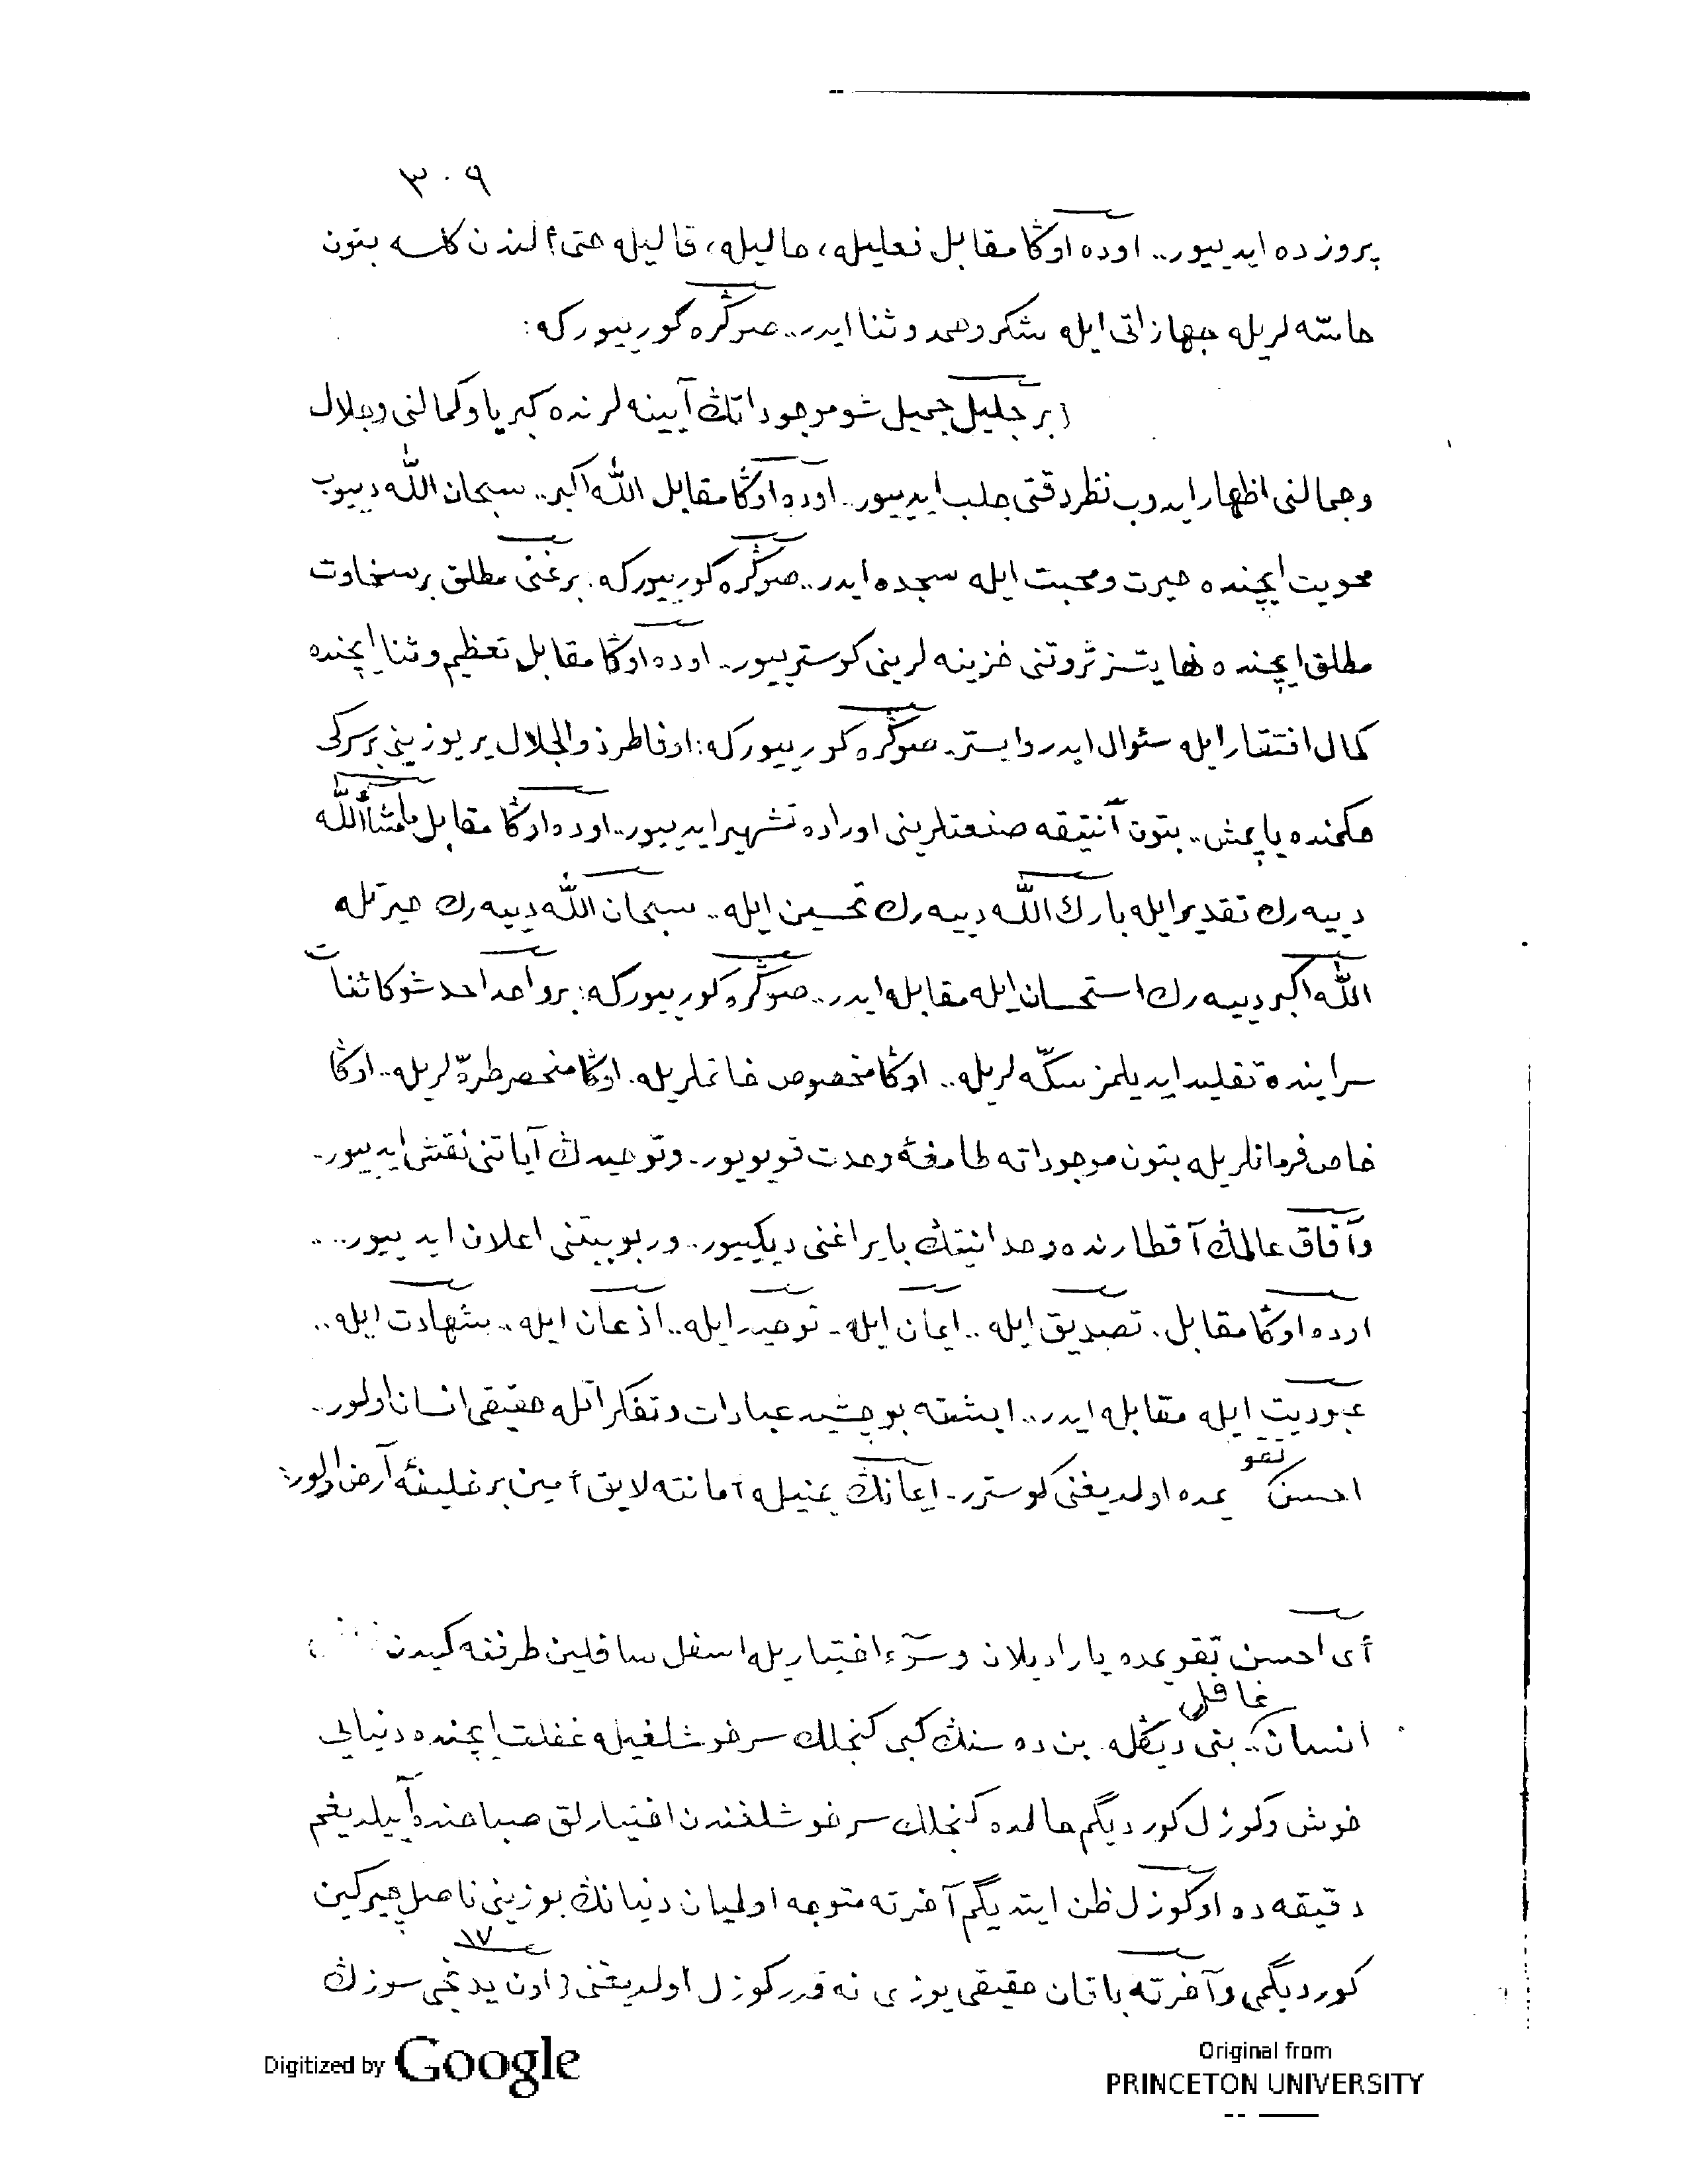 ٣٠٩
پروزده ايدييور.. اوده اوڭا مقابل فعليله، حاليله، قاليله حتى ألندن كلسه بتون
حاسّه لريله جهازاتى ايله شكر وحمد وثنا ايدر.. صوڭره كورييوركه:
بر جليل جميل شو موجوداتڭ آيينه لرنده كبريا وكمالنى وجلال
وجمالنى اظهار ايدوب نظر دقتى جلب ايدييور.. اوده اوڭا مقابل اللّٰه اكبر.. سبحان اللّٰه دييوب
محويت ايچنده حيرت ومحبت ايله سجده ايدر.. صوڭره كورييوركه: بر غنى مطلق بر سخاوت
مطلق ايچنده نهايتسز ثروتنى خزينه لرينى كوسترييور.. اوده اوڭا مقابل تعظيم وثنا ايچنده
كمال افتقار ايله سئوال ايدر وايستر.. صوڭره كورييوركه: او فاطر ذو الجلال ير يوزينى بر سركى
حكمنده ياپمش.. بتون آنتيقه صنعتلرينى اوراده تشهير ايدييور.. اوده اوڭا مقابل ماشأاللّٰه
دييه رك تقدير ايله بارك اللّٰه دييه رك تحسين ايله.. سبحان اللّٰه دييه رك حيرتله
اللّٰه اكبر دييه رك استحسان ايله مقابله ايدر.. صوڭره كورييوركه: بر واحد احد شو كائنات
سراينده تقليد ايديلمز سكّه لريله.. اوڭا مخصوص خاتملريله. اوڭا منحصر طرّه لريله.. اوڭا
خاص فرمانلريله بتون موجوداته طامغۀ وحدت قويويور.. وتوحيدڭ آياتنى نقش ايدييور..
وآفاق عالمڭ آقطارنده وحدانيتڭ بايراغنى ديكييور.. وربوبيتنى اعلان ايدييور.. ..
اوده اوڭا مقابل. تصديق ايله.. ايمان ايله.. توحيد ايله.. اذعان ايله.. شهادت ايله..
عبوديت ايله مقابله ايدر.. ايشته بو چشيد عبادات وتفكراتله حقيقى انسان اولور..
تقو
احسن يمده اولديغنى كوسترر.. ايمانڭ يمنيله أمانته لايق أمين بر خليفۀ آرض اولور:
أى احسن تقويمده يارادیلان وسوٓء اختياريله اسفل سافلين طرفنه كيدن
غافل
انسان.. بنى ديڭله. بن ده سنڭ كبى كنجلك سرخوشلغيله غفلت ايچنده دنيايى
خوش وكوزل كورديگم حالده كنجلك سرخوشلغندن اختيارلق صباحنده آييلديغم
دقيقه ده او كوزل ظن ايتديگم آخرته متوجه اولميان دنيانڭ يوزينى ناصل چيركين
١٧
كورديگمى وآخرته باقان حقيقى يوزى نه قدر كوزل اولديغنى اون يدنجى سوزڭ
Digitized by Google
Original from
PRINCETON UNIVERSITY